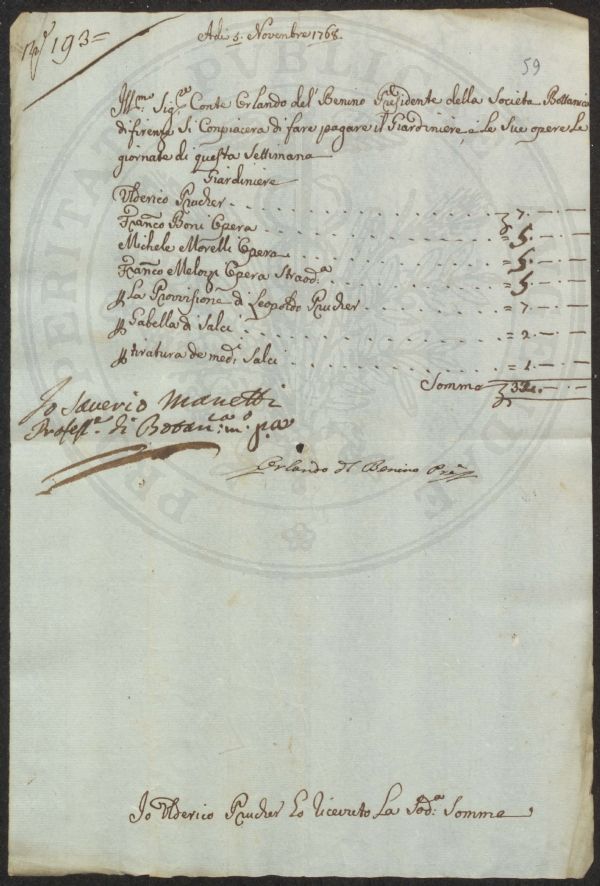 N.° 193=
Adi 5. Novembre 1768.
59
Ill.mo Sig.re Conte Orlando del Benino Presidente della Societa Bottanica
di firenze Si Conpiacera di fare pagare il Giardiniere, e le Sue opere Le
giornate di questa Settimana
Giardiniere
Ulderico Prucher 7. — —
Franco Boni Opera = 5. — —
Michele Morelli Opera = 5. — —
Franco Melozzi Opera Straod.a = 5. — —
P La Provvisione di Leopoldo Prucher = 7. — —
P Gabella di Salci = 2. — —
P tiratura de med.i Salci = 1. — —
Somma 32. — —
Io Saverio Manetti
Profess.e di Botan.ca m.o p.a
Orlando Del Benino Pres.
Io Ulderico Prucher Ho Ricevuto La Sod.a Somma
PERTATAE PUBLICAE